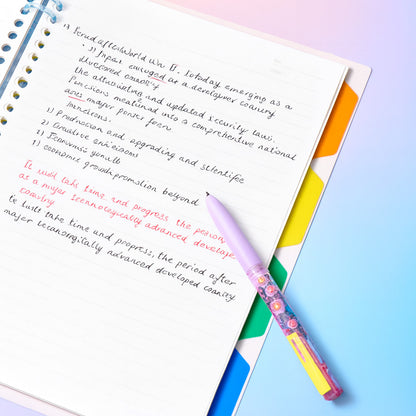 after World War II. Today emerging as a
Japan emerged as a developed country
developed country
the attributing and updated security laws.
Functions meationad into a comprehensive national
ases major power form
1) Production and upgrading and scientific
2) Creative
1) Economic
1) economic growth promotion beyond
It will take time and progress the period
at a major technologically advanced develope
country
to built take time and progress, the period after
major tecanorgitally advanced developed coanity